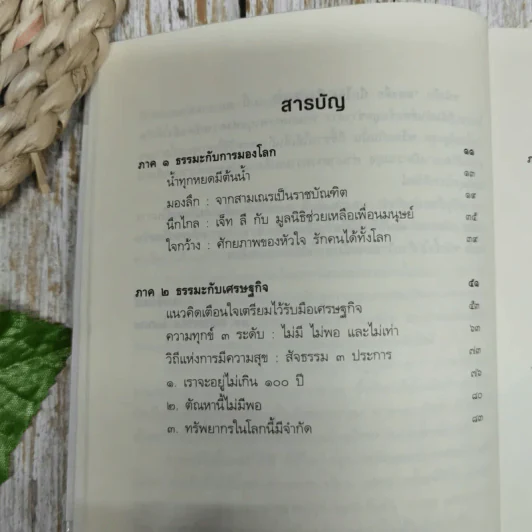 สารบัญ
ภาค ๑ ธรรมะกับการมองโลก ๑๑
น้ำทุกหยดมีต้นน้ำ ๑๓
มองลึก : จากสามเณรเป็นราชบัณฑิต ๑๙
นึกไกล : เจ็ท ลี กับ มูลนิธิช่วยเหลือเพื่อนมนุษย์ ๓๕
ใจกว้าง : ศักยภาพของหัวใจ รักคนได้ทั้งโลก ๓๙
ภาค ๒ ธรรมะกับเศรษฐกิจ ๕๑
แนวคิดเตือนใจเตรียมไว้รับมือเศรษฐกิจ ๕๓
ความทุกข์ ๓ ระดับ : ไม่มี ไม่พอ และไม่เท่า ๖๓
วิถีแห่งการมีความสุข : สัจธรรม ๓ ประการ ๗๓
๑. เราจะอยู่ไม่เกิน ๑๐๐ ปี ๗๖
๒. ตัณหานี้ไม่มีพอ ๘๐
๓. ทรัพยากรในโลกนี้มีจำกัด ๘๓